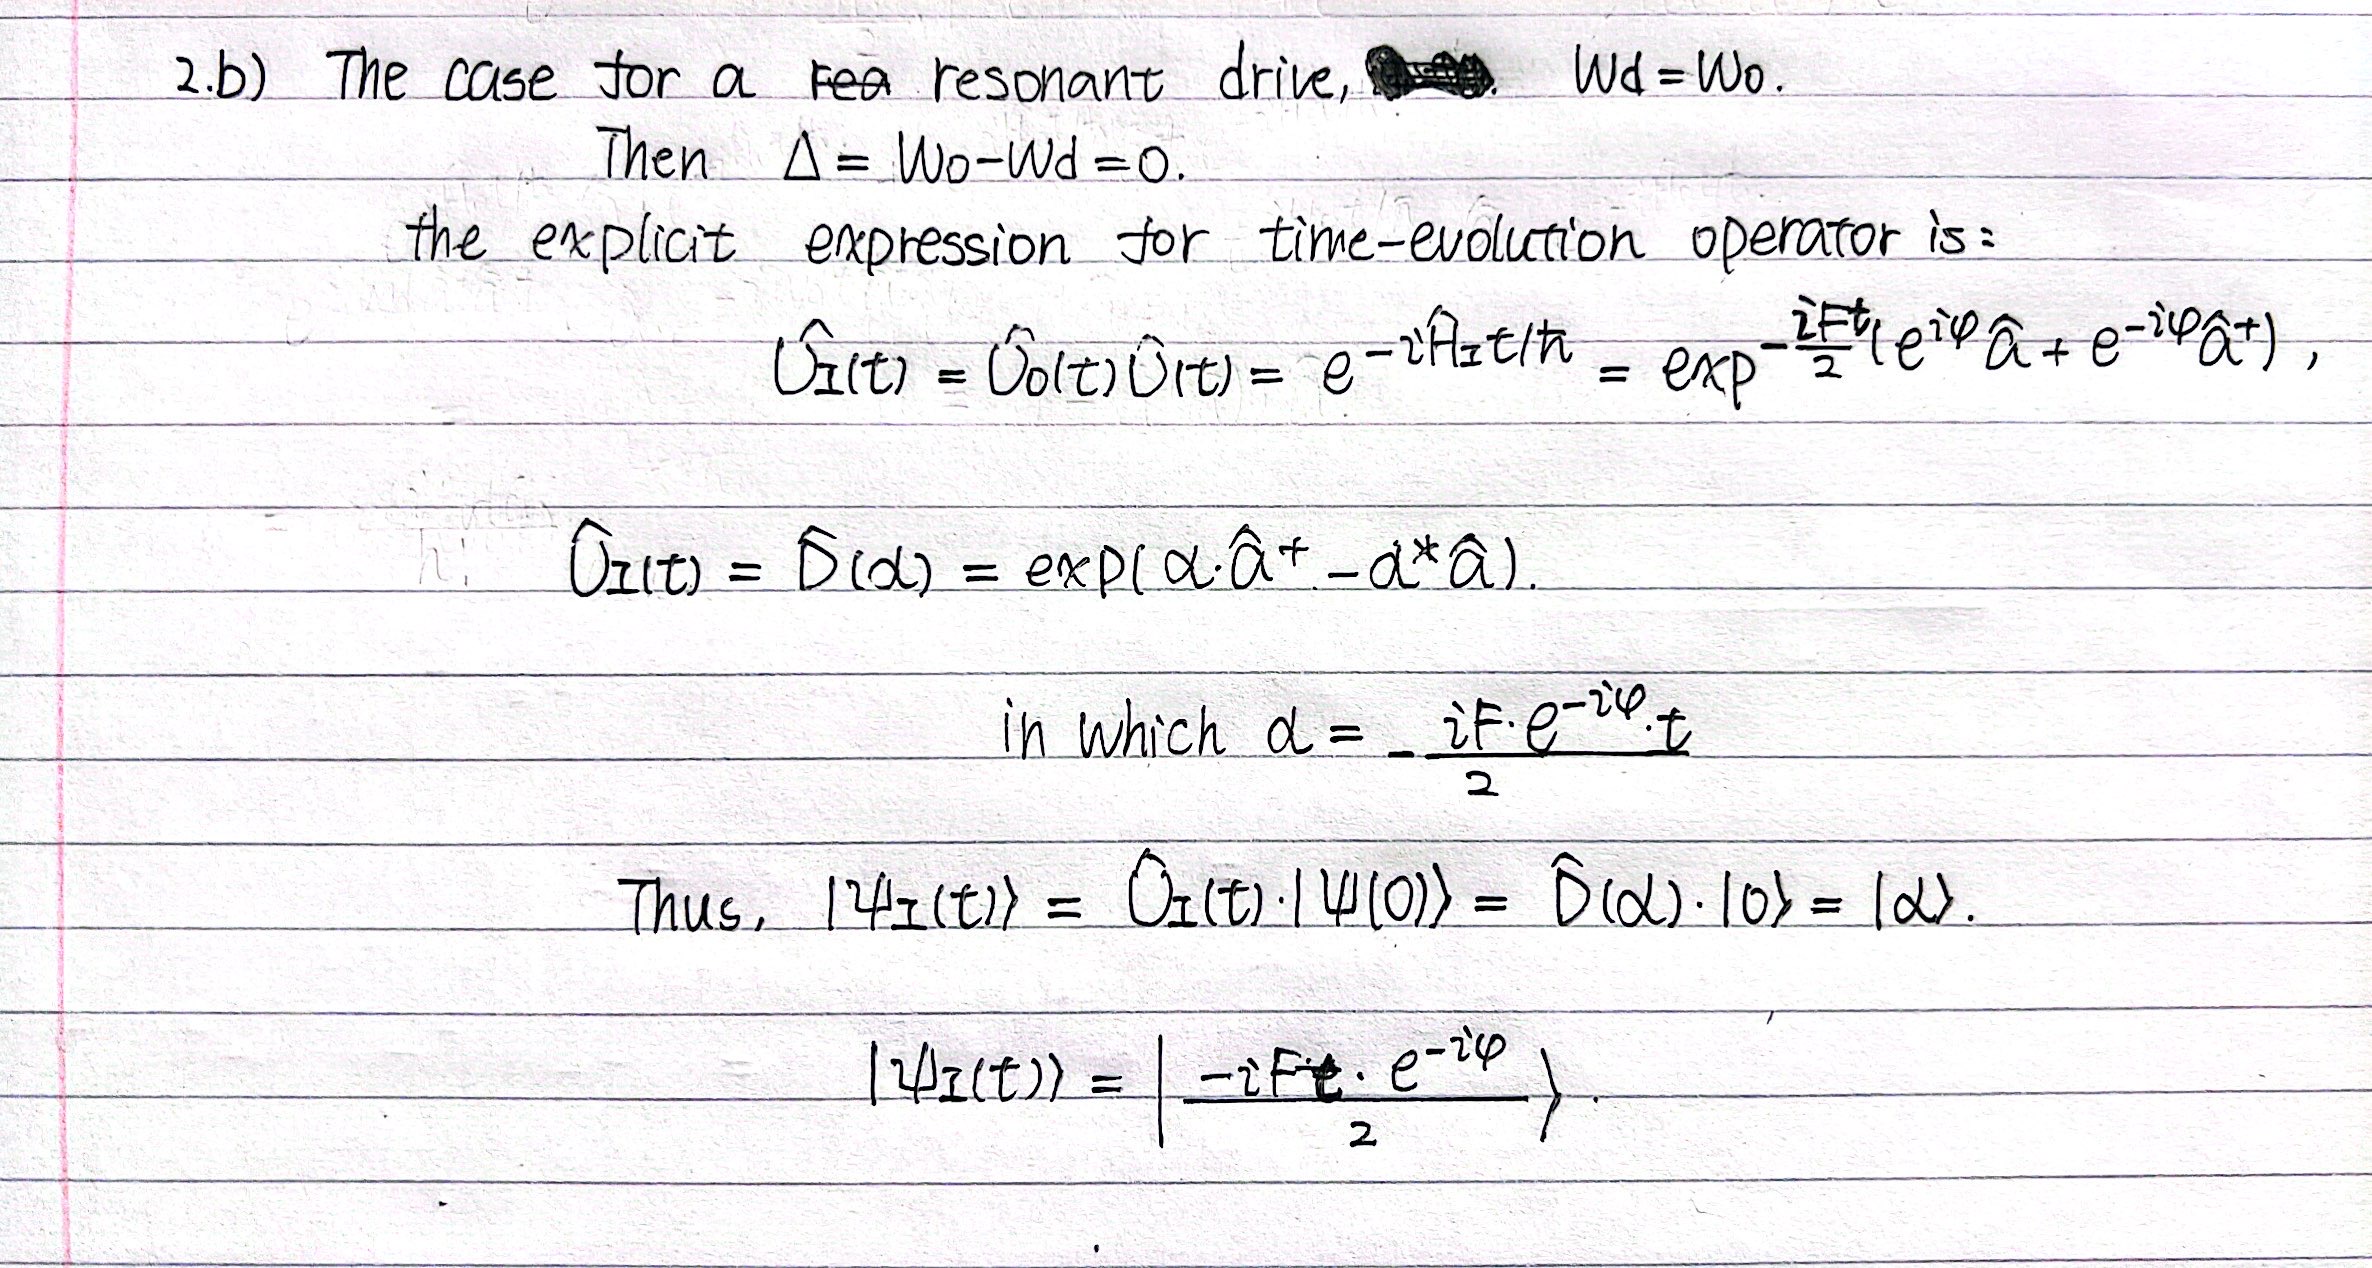 2.b) The case for a rea resonant drive, Wd = Wo.
Then Δ = Wo-Wd = 0.
the explicit expression for time-evolution operator is:
Û_I(t) = Û_0(t) Û(t) = e^{-iĤ_I t/ħ} = exp^{-\frac{iFt}{2}(e^{iφ} â + e^{-iφ} â^+)},
Û_I(t) = D̂(α) = exp(α·â^+ - α*â).
in which α = -\frac{iF·e^{-iφ}·t}{2}
Thus, |Ψ_I(t)⟩ = Û_I(t)·|Ψ(0)⟩ = D̂(α)·|0⟩ = |α⟩.
|Ψ_I(t)⟩ = |\frac{-iFt·e^{-iφ}}{2}⟩.